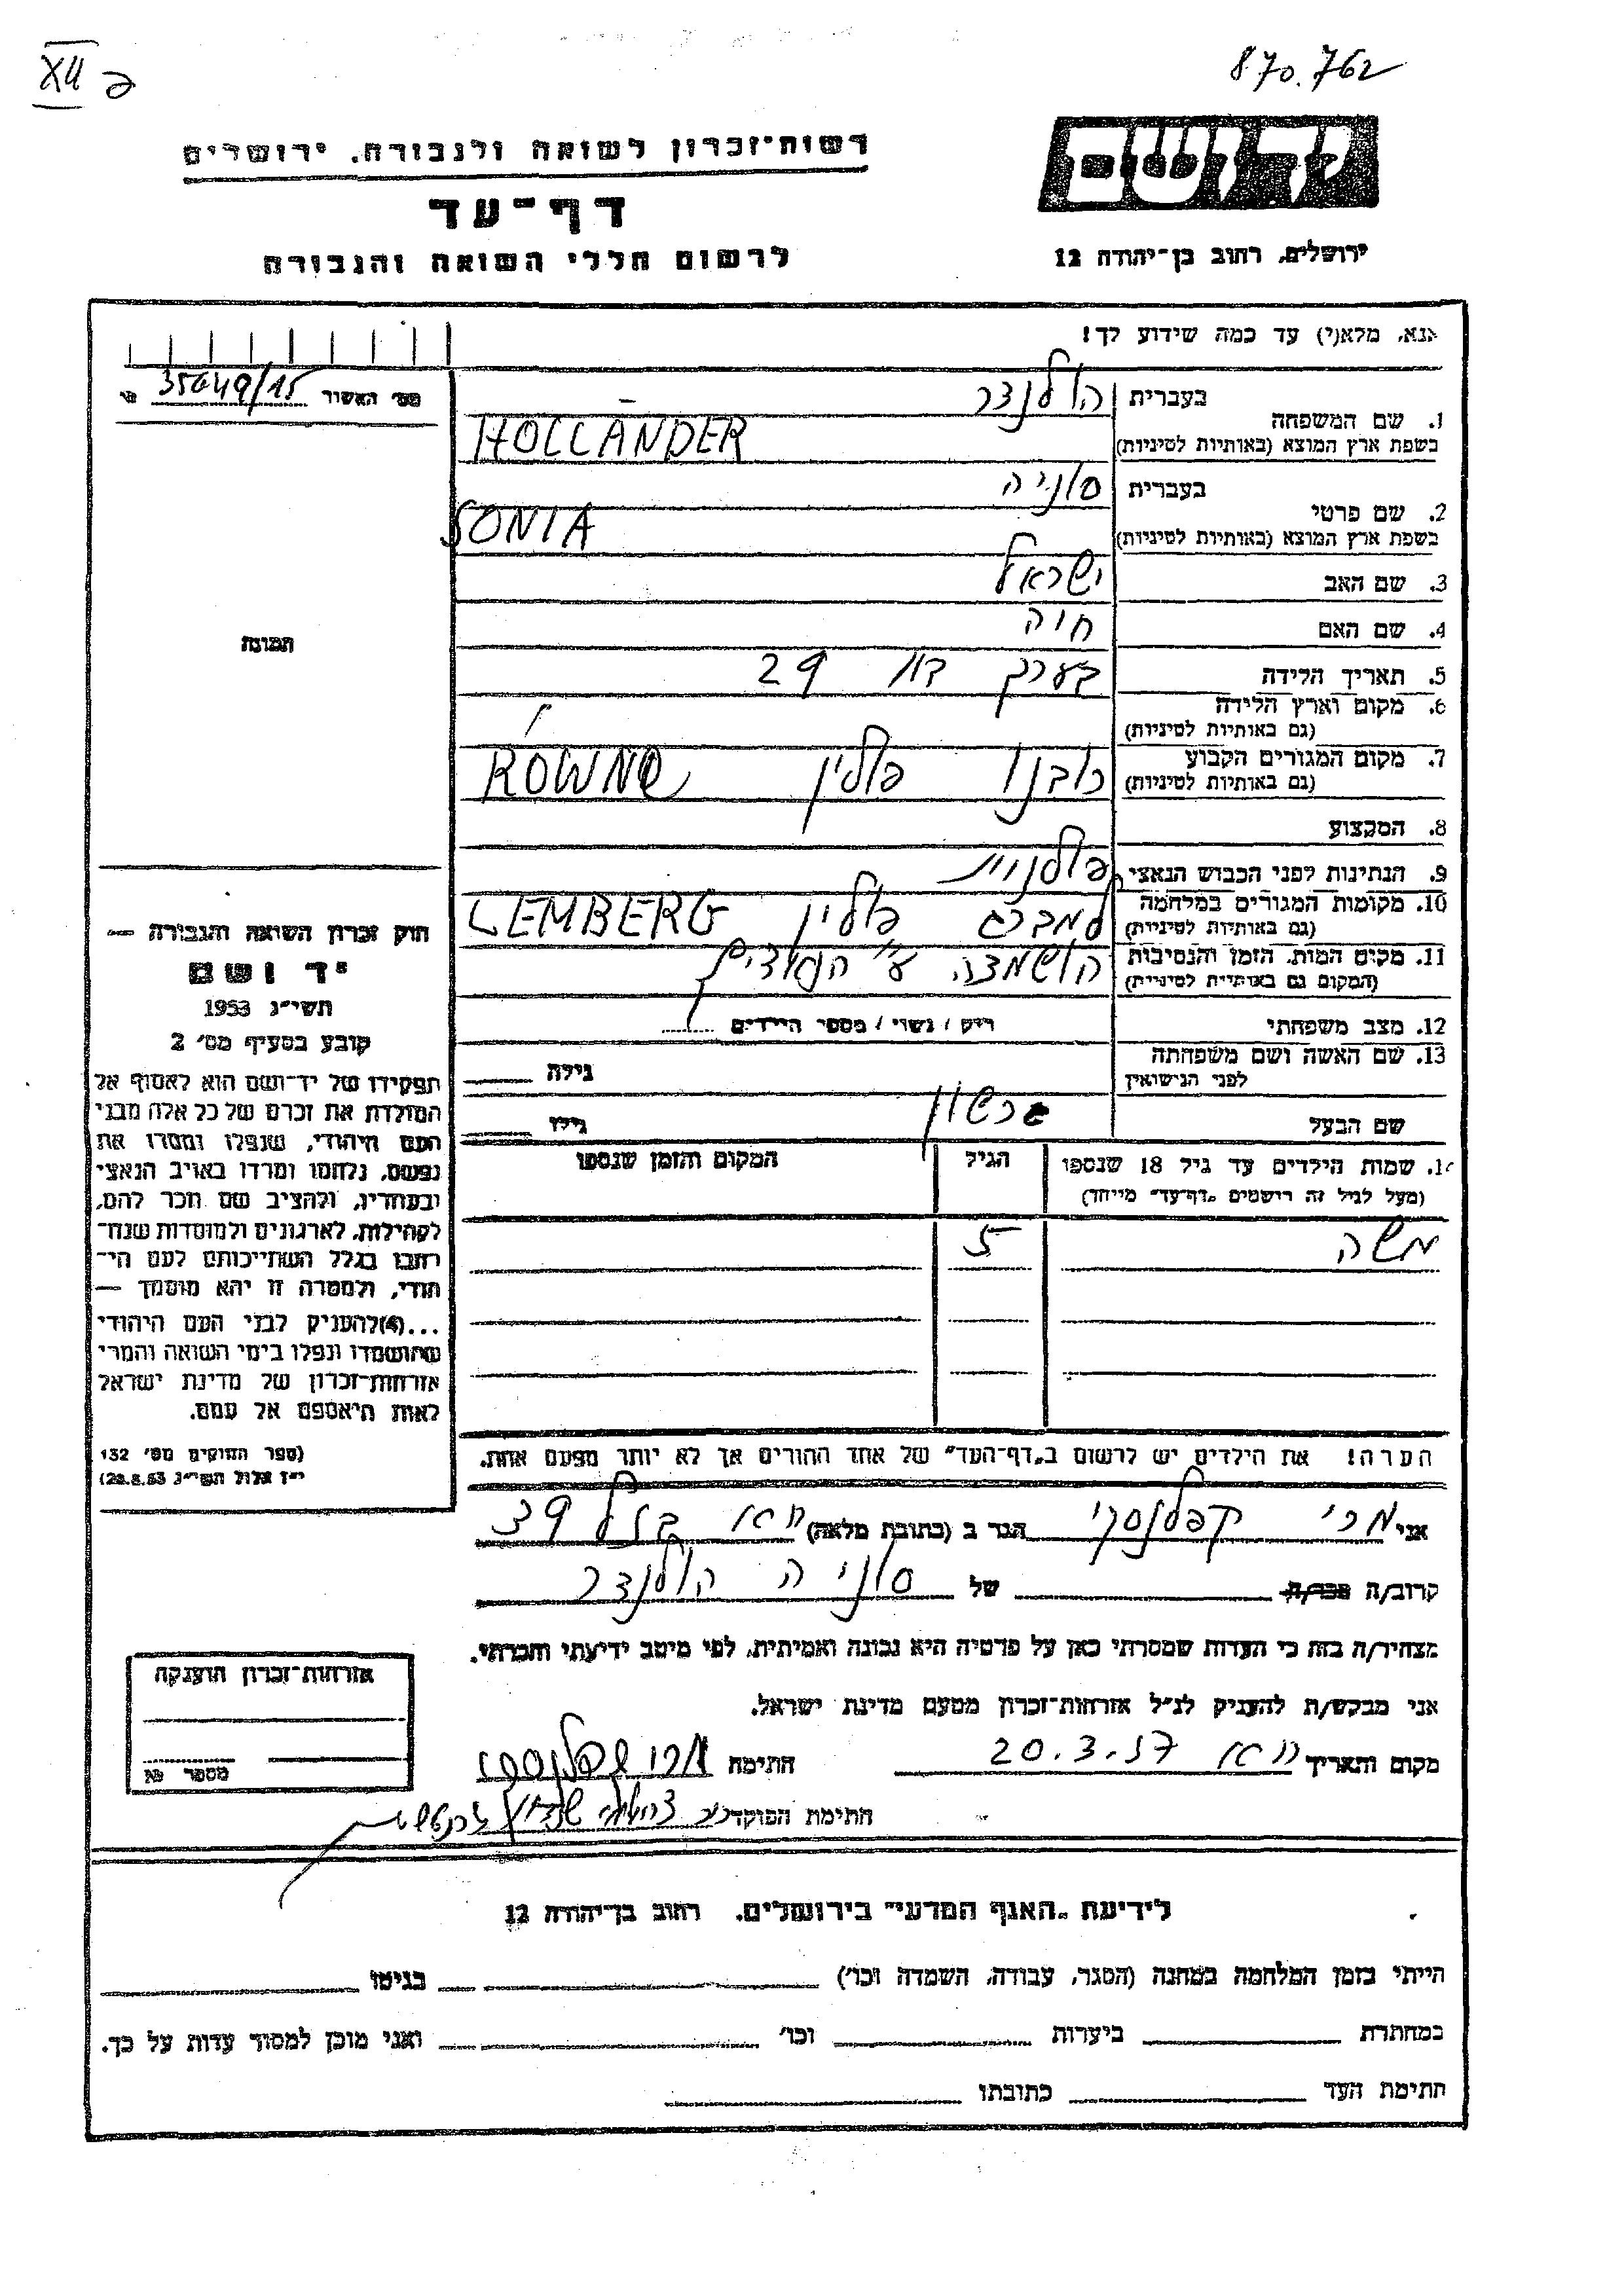 XII
870.762
ידושם
רשות־זכרון לשואה ולגבורה. ירושלים
דף־עד
לרשום חללי השואה והגבורה
ירושלים. רחוב בן־יהודה 12
אנא, מלא(י) עד כמה שידוע לך!
מס׳ האשור 35649/15
1. שם המשפחה
בעברית הולנדר
בשפת ארץ המוצא (באותיות לטיניות) HOLLÄNDER
2. שם פרטי
בעברית סוניה
בשפת ארץ המוצא (באותיות לטיניות) SONIA
3. שם האב ישראל
4. שם האם חיה
5. תאריך הלידה בערך 29
6. מקום וארץ הלידה
(גם באותיות לטיניות)
7. מקום המגורים הקבוע רובנו פולין RÓWNO
(גם באותיות לטיניות)
8. המקצוע
9. הנתינות לפני הכבוש הנאצי פולנית
10. מקומות המגורים במלחמה למברג פולין LEMBERG
(גם באותיות לטיניות)
11. מקום המות, הזמן והנסיבות הושמדה ע״י הנאצים
(המקום גם באותיות לטיניות)
12. מצב משפחתי רוק / נשוי / מספר הילדים
13. שם האשה ושם משפחתה גילה
לפני הנישואין
שם הבעל גרשון גילו
14. שמות הילדים עד גיל 18 שנספו הגיל המקום והזמן שנספו
(מעל לגיל זה רושמים „דף־עד״ מיוחד)
משה 5
הערה! את הילדים יש לרשום ב„דף־העד״ של אחד ההורים אך לא יותר מפעם אחת.
תמונה
חוק זכרון השואה והגבורה —
יד ושם
תשי״ג 1953
קובע בסעיף מס׳ 2
תפקידו של יד־ושם הוא לאסוף אל
המולדת את זכרם של כל אלה מבני
העם היהודי, שנפלו ומסרו את
נפשם, נלחמו ומרדו באויב הנאצי
ובעוזריו, ולהציב שם וזכר להם,
לקהילות, לארגונים ולמוסדות שנח־
רבו בגלל השתייכותם לעם הי־
הודי, ולמטרה זו יהא מוסמך —
...(4)להעניק לבני העם היהודי
שהושמדו ונפלו בימי השואה והמרי
אזרחות־זכרון של מדינת ישראל
לאות היאספם אל עמם.
(ספר החוקים מס׳ 132
י״ז אלול תשי״ג 28.8.53)
אני מרי קפלנסקי הגר ב (כתובת מלאה) 39
קרוב/ה מכר/ה של סוניה הולנדר
מצהיר/ה בזה כי העדות שמסרתי כאן על פרטיה היא נכונה ואמיתית, לפי מיטב ידיעתי והכרתי.
אני מבקש/ת להעניק לנ״ל אזרחות־זכרון מטעם מדינת ישראל.
מקום ותאריך 20.3.57 חתימה
חתימת הפוקד
אזרחות־זכרון הוענקה
מספר
לידיעת „האגף המדעי״ בירושלים. רחוב בן־יהודה 12
הייתי בזמן המלחמה במחנה (הסגר, עבודה, השמדה וכו׳) בגיטו
במחתרת ביערות וכו׳ ואני מוכן למסור עדות על כך.
חתימת העד כתובתו